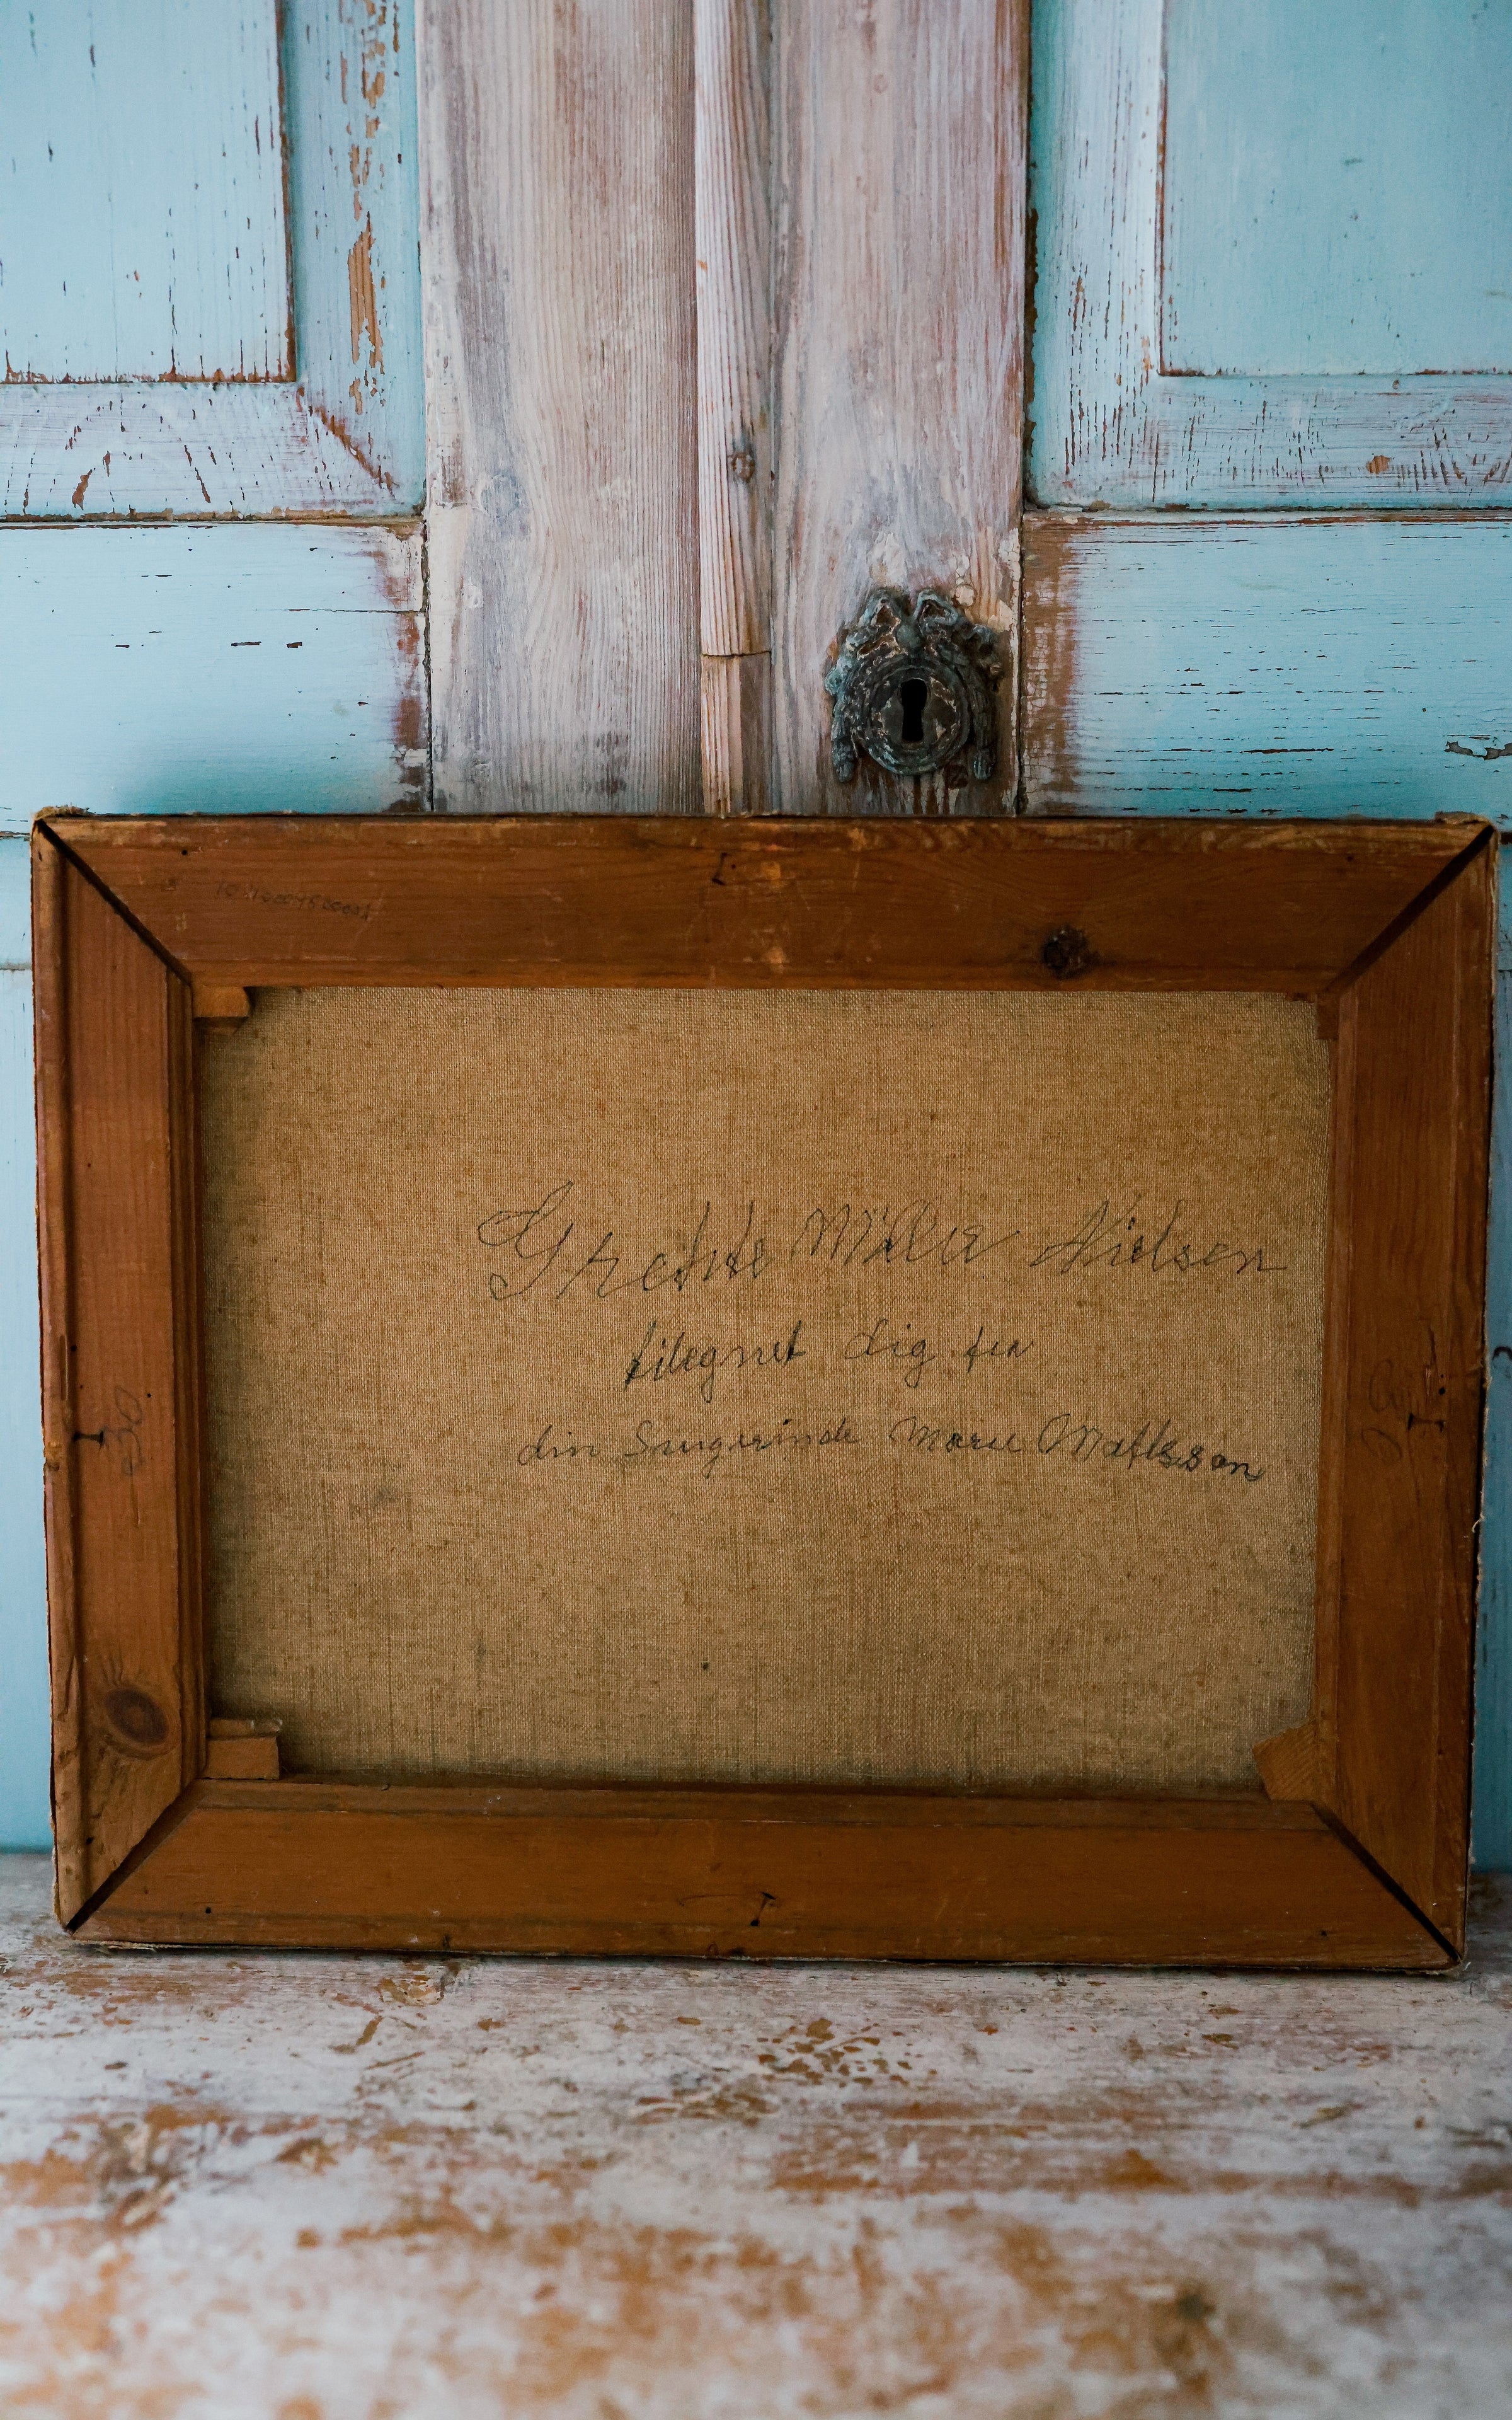 Grethe Møller Nielsen
tilegnet dig fra
din Svigerinde Marie Mattsson